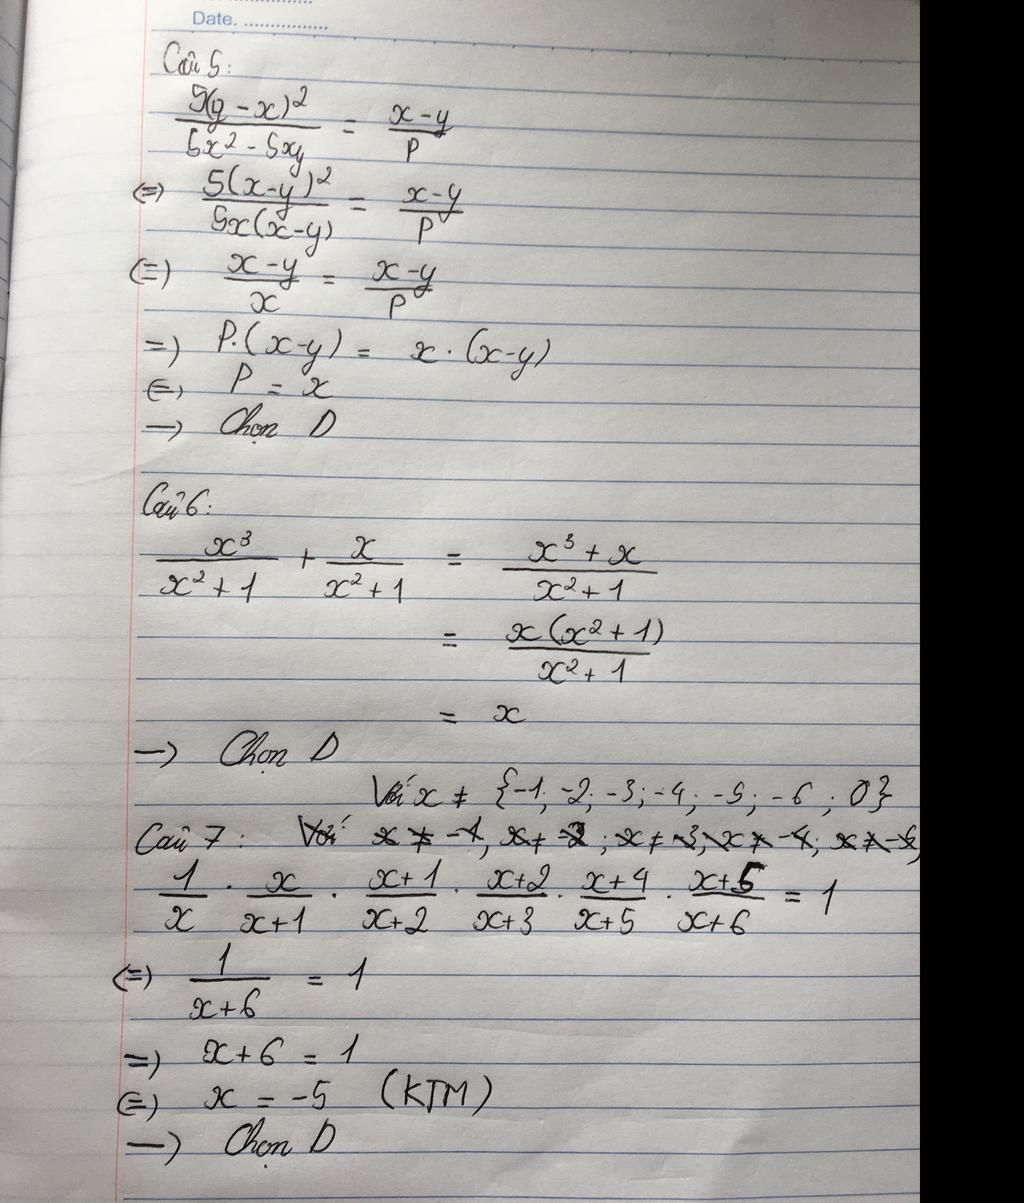 Date. ................
Câu 5:
5(y - x)² / 5x² - 5xy = x - y / P
(=) 5(x-y)² / 5x(x-y) = x-y / P
(=) x-y / x = x-y / P
=) P.(x-y) = x . (x-y)
(=) P = x
→ Chọn D
Câu 6:
x³ / x² + 1 + x / x² + 1 = x³ + x / x² + 1
= x(x² + 1) / x² + 1
= x
→ Chọn D
Với x ≠ {-1; -2; -3; -4; -5; -6; 0}
Câu 7: Với x ≠ -1, x ≠ -2; x ≠ -3; x ≠ -4;
1 / x . x / x+1 . x+1 / x+2 . x+2 / x+3 . x+4 / x+5 . x+5 / x+6 = 1
(=) 1 / x+6 = 1
=) x+6 = 1
(=) x = -5 (KTM)
→ Chọn D